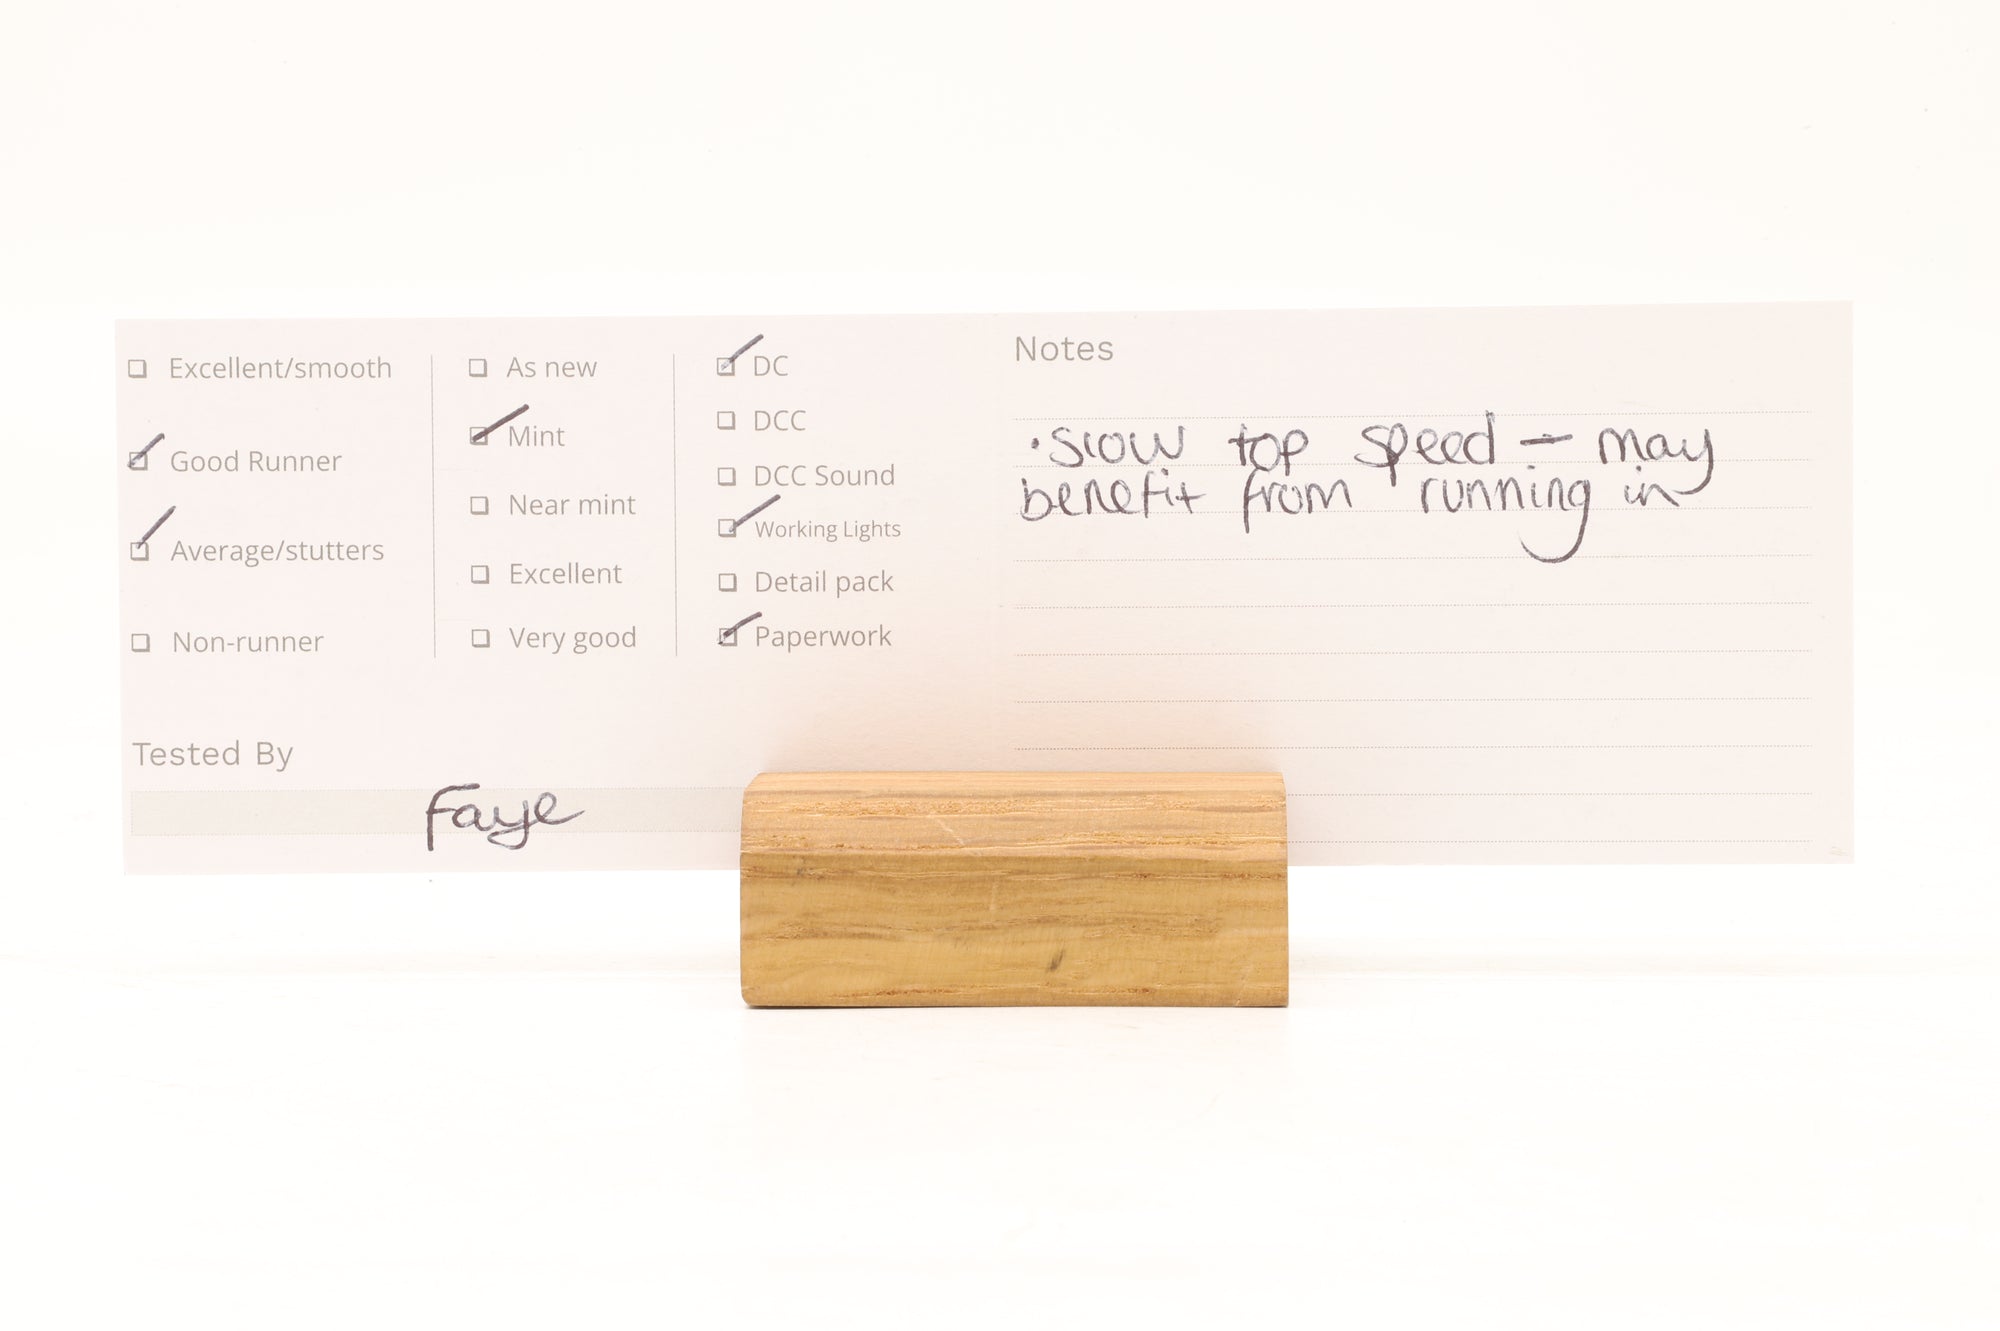 Excellent/smooth
Good Runner
Average/stutters
Non-runner
As new
Mint
Near mint
Excellent
Very good
DC
DCC
DCC Sound
Working Lights
Detail pack
Paperwork
Tested By
Faye
Notes
• Slow top speed – may
benefit from running in